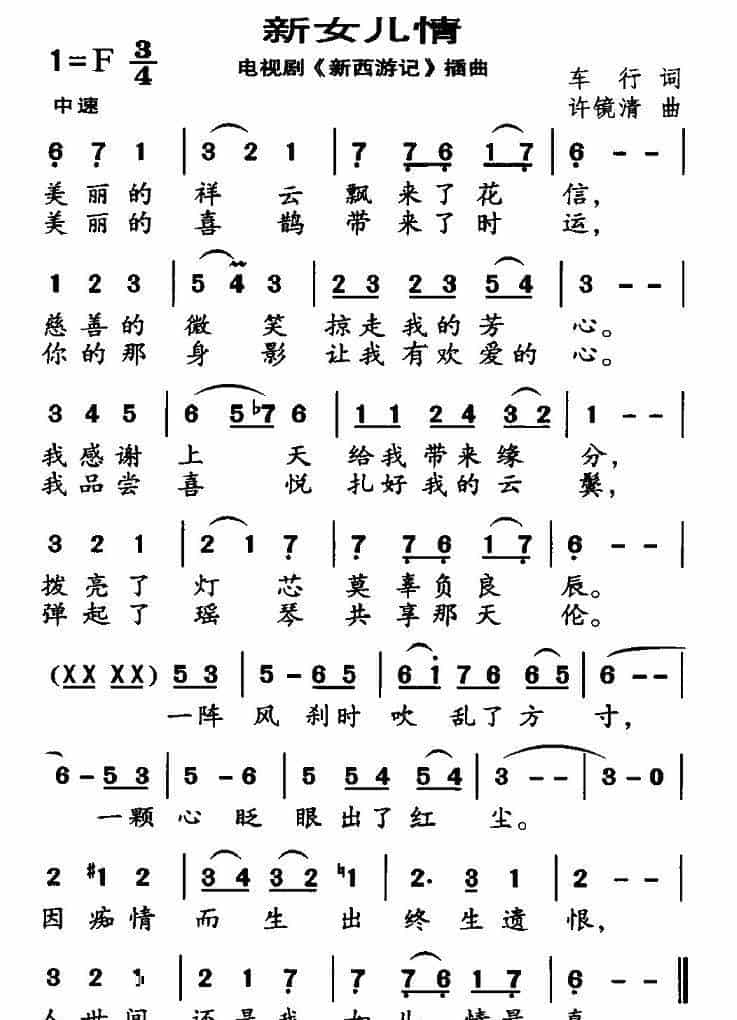 新女儿情
1=F 3/4
电视剧《新西游记》插曲
车行 词
中速
许镜清 曲
6 7 1 | 3 2 1 | 7 7 6 1 7 | 6 - - |
美丽的祥云飘来了花信，
美丽的喜鹊带来了时运，
1 2 3 | 5 4 3 | 2 3 2 3 5 4 | 3 - - |
慈善的微笑掠走我的芳心。
你的那身影让我有欢爱的心。
3 4 5 | 6 5 ♭7 6 | 1 1 2 4 3 2 | 1 - - |
我感谢上天给我带来缘分，
我品尝喜悦扎好我的云鬓，
3 2 1 | 2 1 7 | 7 7 6 1 7 | 6 - - |
拨亮了灯芯莫辜负良辰。
弹起了瑶琴共享那天伦。
(X X X X) 5 3 | 5 - 6 5 | 6 1 7 6 6 5 | 6 - - |
一阵风刹时吹乱了方寸，
6 - 5 3 | 5 - 6 | 5 5 4 5 4 | 3 - - | 3 - 0 |
一颗心眨眼出了红尘。
2 #1 2 | 3 4 3 2 ♮1 | 2· 3 1 | 2 - - |
因痴情而生出终生遗恨，
3 2 1 | 2 1 7 | 7 7 6 1 7 | 6 - - ‖